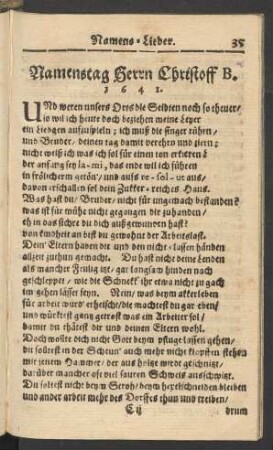 Namens-Lieder. 35
Namenstag Herrn Christoff B.
1641.
UNd weren unsers Orts die Seldten noch so theuer/
so wil ich heute doch beziehen meine Leyer
ein Liedgen aufzuspieln; ich muß die finger rühren/
und Bruder/ deinen tag damit verehrn und ziern:
nicht weiß ich was ich sol für einen ton erkieren?
der anfang sey la-mi, das ende wil ich führen
in frölicherm getön/ und aufs re-sol-ut aus/
davon erschallen sol dein Zukker-reiches Haus.
Was hast du/ Bruder/ nicht für ungemach bestanden?
was ist für mühe nicht gegangen dir zuhanden/
eh in das sichre du dich außgewunden hast?
von kindheit an bist du gewohnt der Arbeitslast.
Dein' Eltern haben dir und den nicht-lassen händen
allzeit zuthun gemacht. Du hast nicht deine Lenden
als mancher Feulig tzt/ gar langsam hinden nach
geschleppet/ wie die Schnekk' ihr etwa nicht zu gach
im gehen lässet seyn. Nein/ was beym akkerleben
für arbeit wird erheischt/ die machtest du gar eben/
und würktest gantz getrost was ein Arbeiter sol/
damit du thätest dir und deinen Eltern wohl.
Doch wollte dich nicht Gott beym pfluge lassen gehen/
du soltest in der Scheun' auch mehr nicht klopffen stehen
mit jenem Hammer/ der aus heitze wird geschnitzt/
darüber mancher oft viel sauren Schweis ausschwitzt.
Du soltest nicht beym Stroh/ beym hexelschneiden bleiben
und ander arbeit mehr des Dorffes thun und treiben/
C ij drum